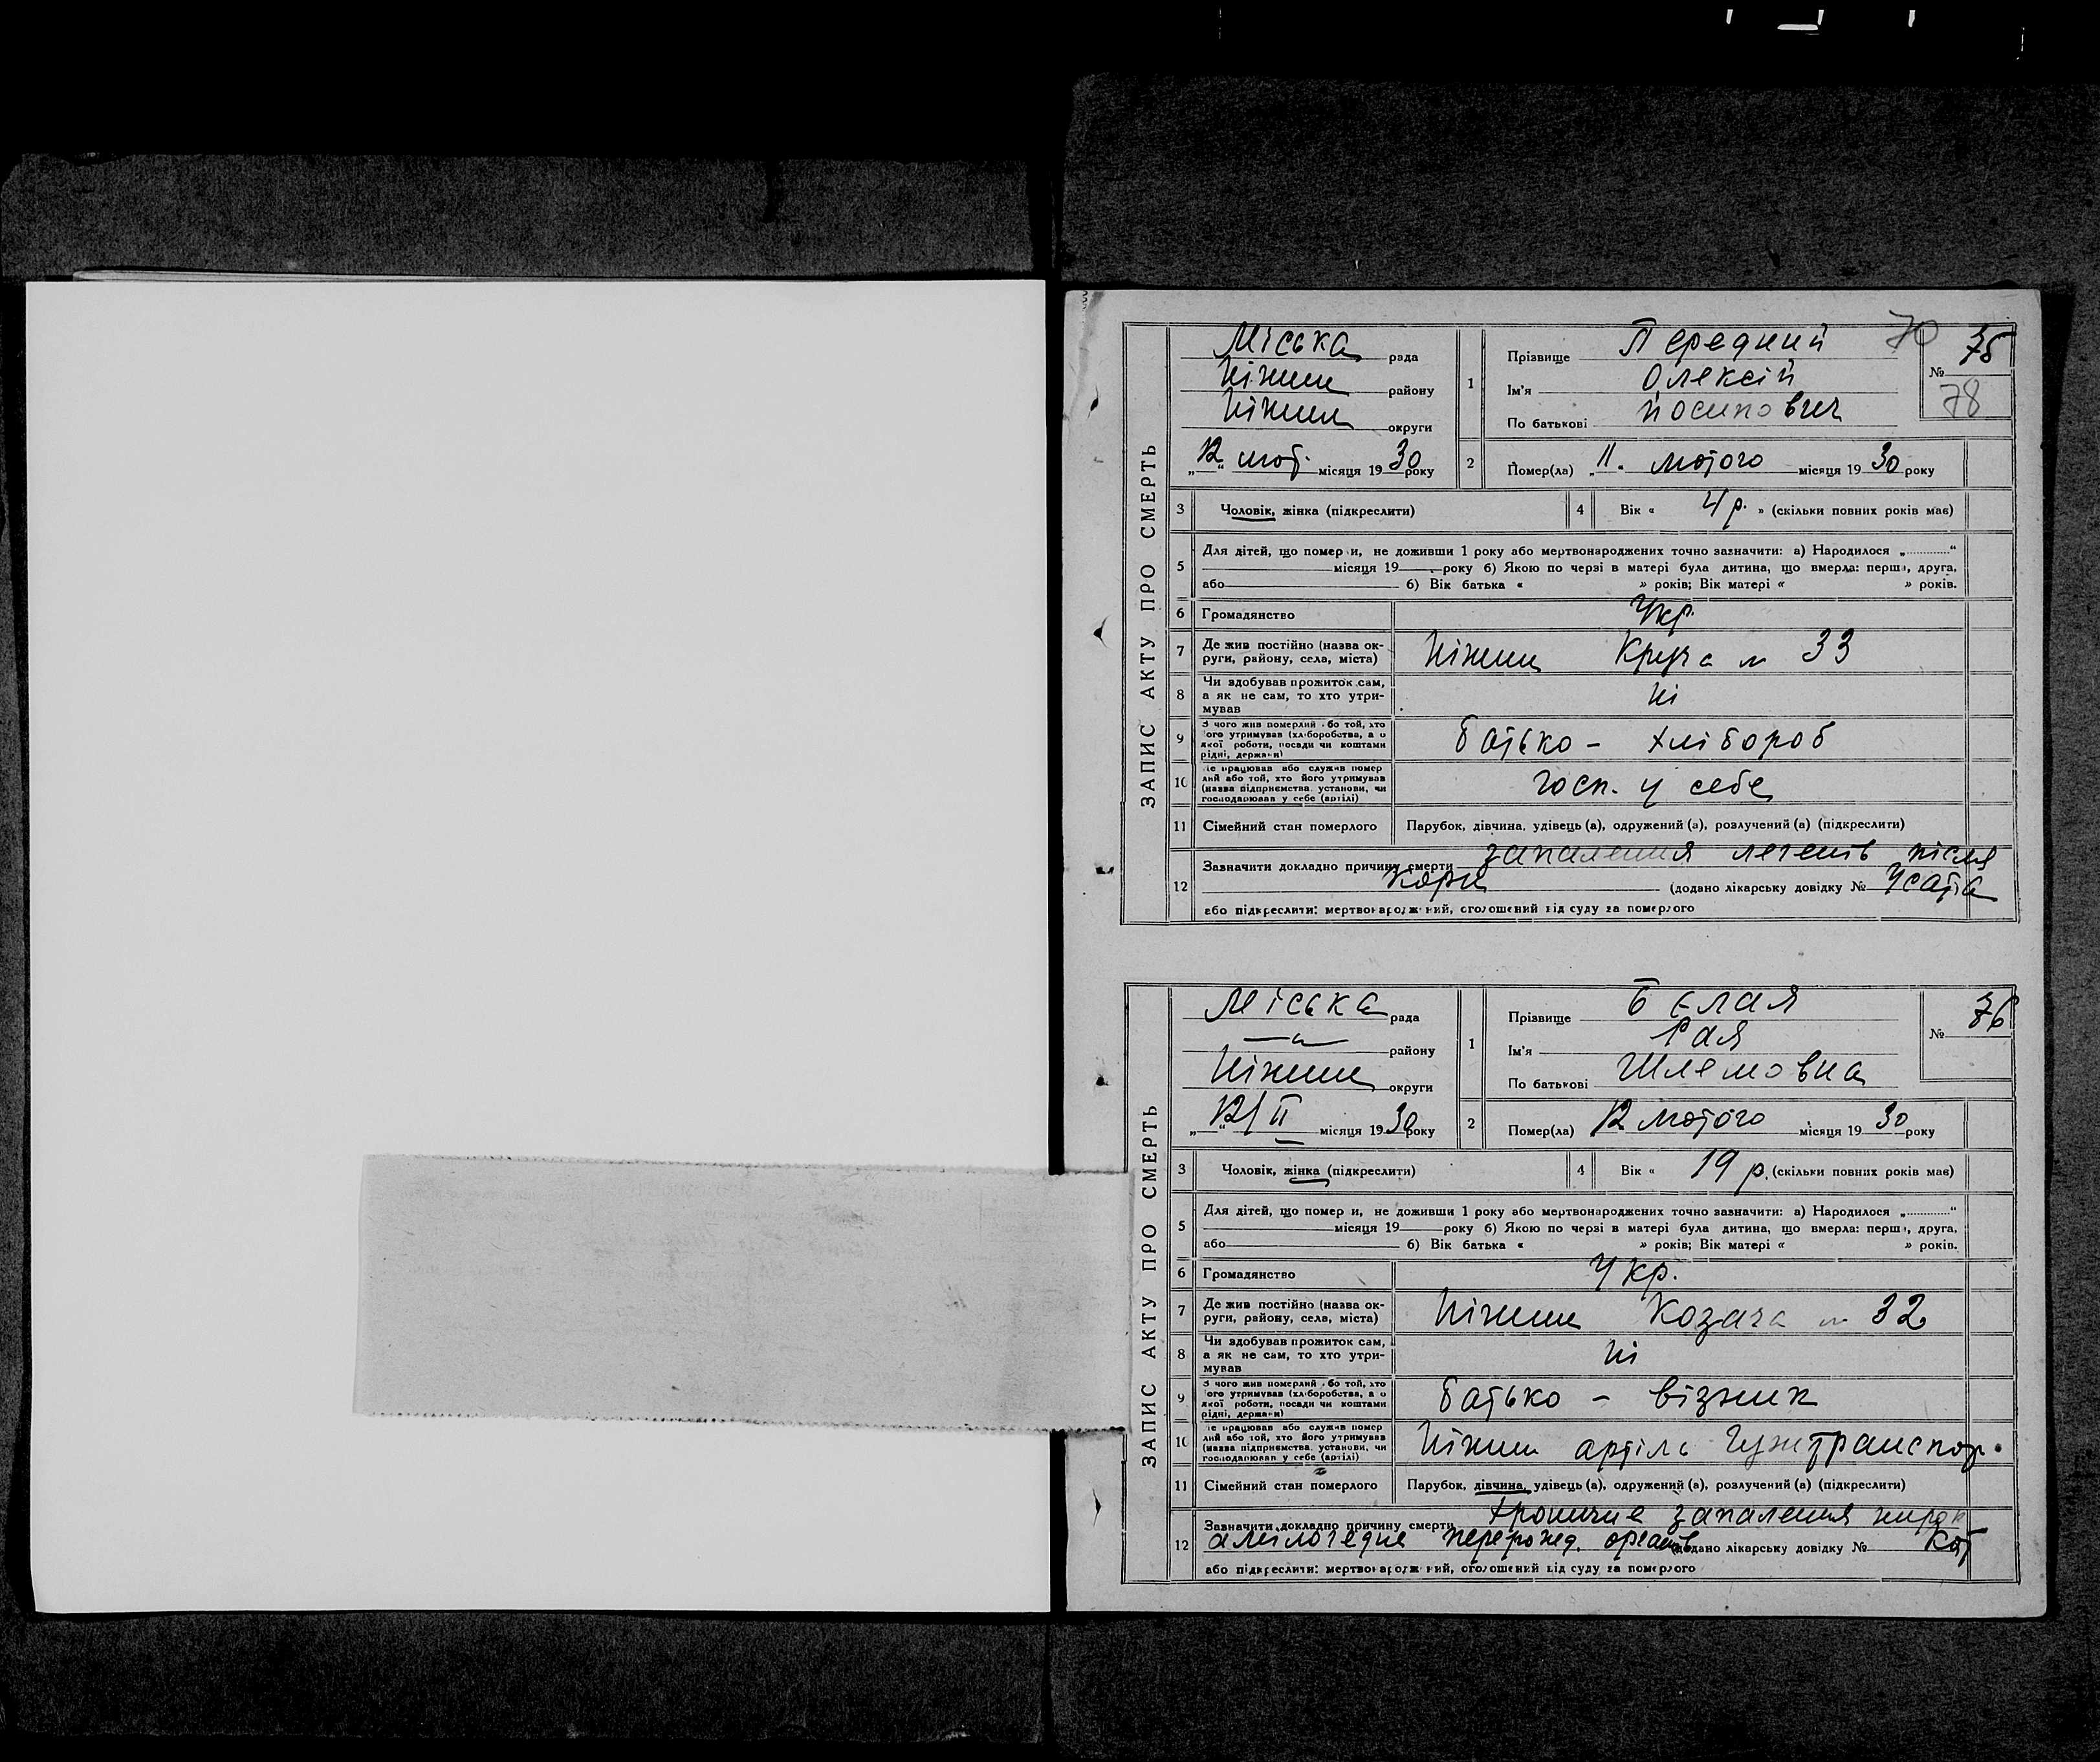 ЗАПИС АКТУ ПРО СМЕРТЬ
Міська рада
Ніжин району
Ніжин округи
„12“ лют. місяця 1930 року
1
Прізвище Передний
Ім'я Олексій
По батькові Йосипович
70
№ 75
78
2 Помер(ла) „11. лютого місяця 1930 року
3 Чоловік, жінка (підкреслити)
4 Вік « 4 р. » (скільки повних років має)
5 Для дітей, що помер и, не доживши 1 року або мертвонароджених точно зазначити: а) Народилося „............“
місяця 19 року б) Якою по черзі в матері була дитина, що вмерла: перш, друга,
або б) Вік батька « » років; Вік матері « » років.
6 Громадянство Укр.
7 Де жив постійно (назва ок-
руги, району, села, міста) Ніжин Круча № 33
8 Чи здобував прожиток сам,
а як не сам, то хто утри-
мував ні
9 З чого жив померлий або той, хто
його утримував (хліборобства, а о
якої роботи, посади чи коштами
рідні, держави) батько - хлібороб
10 Де працював або служив помер
лий або той, хто його утримував
(назва підприємства, установи, чи
господарював у себе (артілі) госп. у себе
11 Сімейний стан померлого Парубок, дівчина, удівець (а), одружений (а), розлучений (а) (підкреслити)
12 Зазначити докладно причину смерти запалення легенів після
кори (додано лікарську довідку №
або підкреслити: мертвонароджений, оголошений від суду за померлого
ЗАПИС АКТУ ПРО СМЕРТЬ
Міська рада
—„— району
Ніжин округи
„12/II“ місяця 1930 року
1
Прізвище Белая
Ім'я Рая
По батькові Шлемовна
№ 76
2 Помер(ла) 12 лютого місяця 1930 року
3 Чоловік, жінка (підкреслити)
4 Вік « 19 р. (скільки повних років має)
5 Для дітей, що помер и, не доживши 1 року або мертвонароджених точно зазначити: а) Народилося „............“
місяця 19 року б) Якою по черзі в матері була дитина, що вмерла: перш, друга,
або б) Вік батька « » років; Вік матері « » років.
6 Громадянство Укр.
7 Де жив постійно (назва ок-
руги, району, села, міста) Ніжин Козача № 32
8 Чи здобував прожиток сам,
а як не сам, то хто утри-
мував ні
9 З чого жив померлий або той, хто
його утримував (хліборобства, а о
якої роботи, посади чи коштами
рідні, держави) батько - візник
10 Де працював або служив помер
лий або той, хто його утримував
(назва підприємства, установи, чи
господарював у себе (артілі) Ніжин артіль Гужтранспор.
11 Сімейний стан померлого Парубок, дівчина, удівець (а), одружений (а), розлучений (а) (підкреслити)
12 Зазначити докладно причину смерти хроничне запалення нирок
амілоїдне перерожд. органів (додано лікарську довідку №
або підкреслити: мертвонароджений, оголошений від суду за померлого